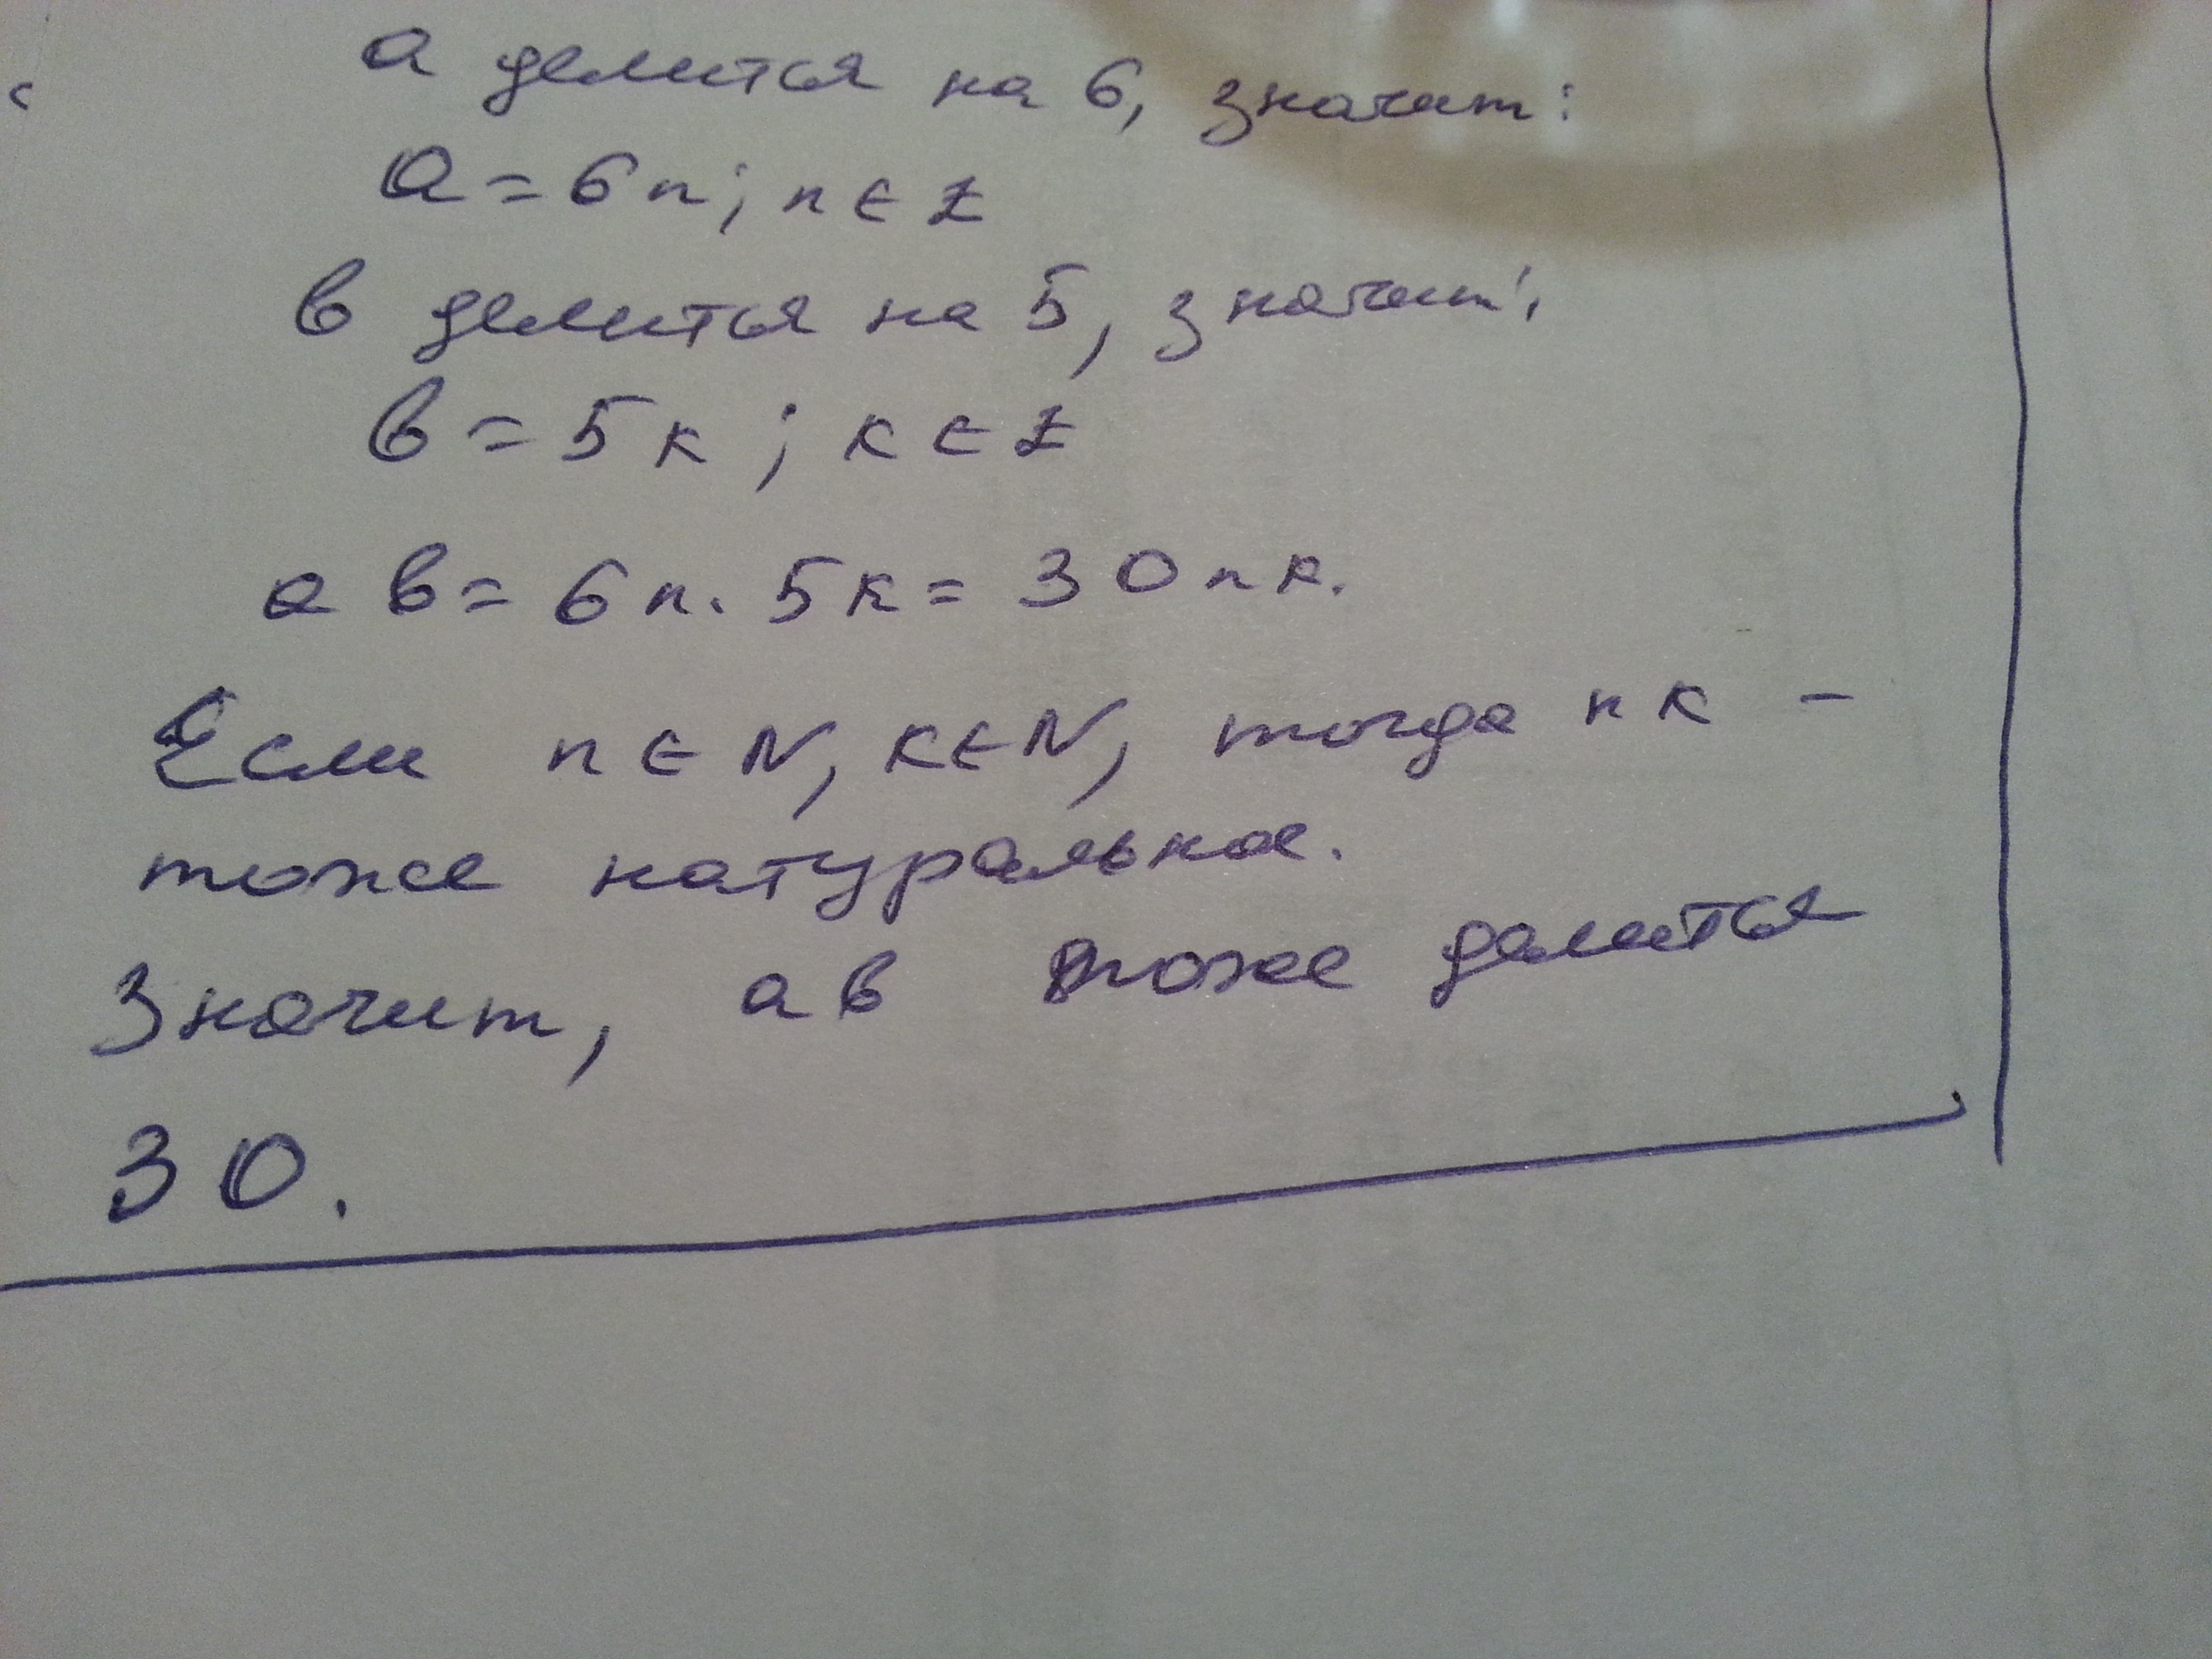 а делится на 6, значит:
a = 6n; n ∈ Z
в делится на 5, значит:
в = 5к; к ∈ Z
ав = 6n · 5к = 30nк.
Если n ∈ N, к ∈ N, тогда nк –
тоже натуральное.
Значит, ав тоже делится
30.